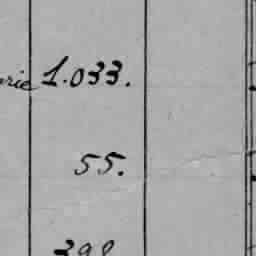 rie 1.033.
55.
398